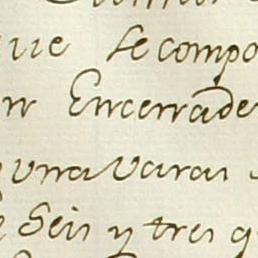 ue se compo
Encerrade
una vara
Seis y tres q